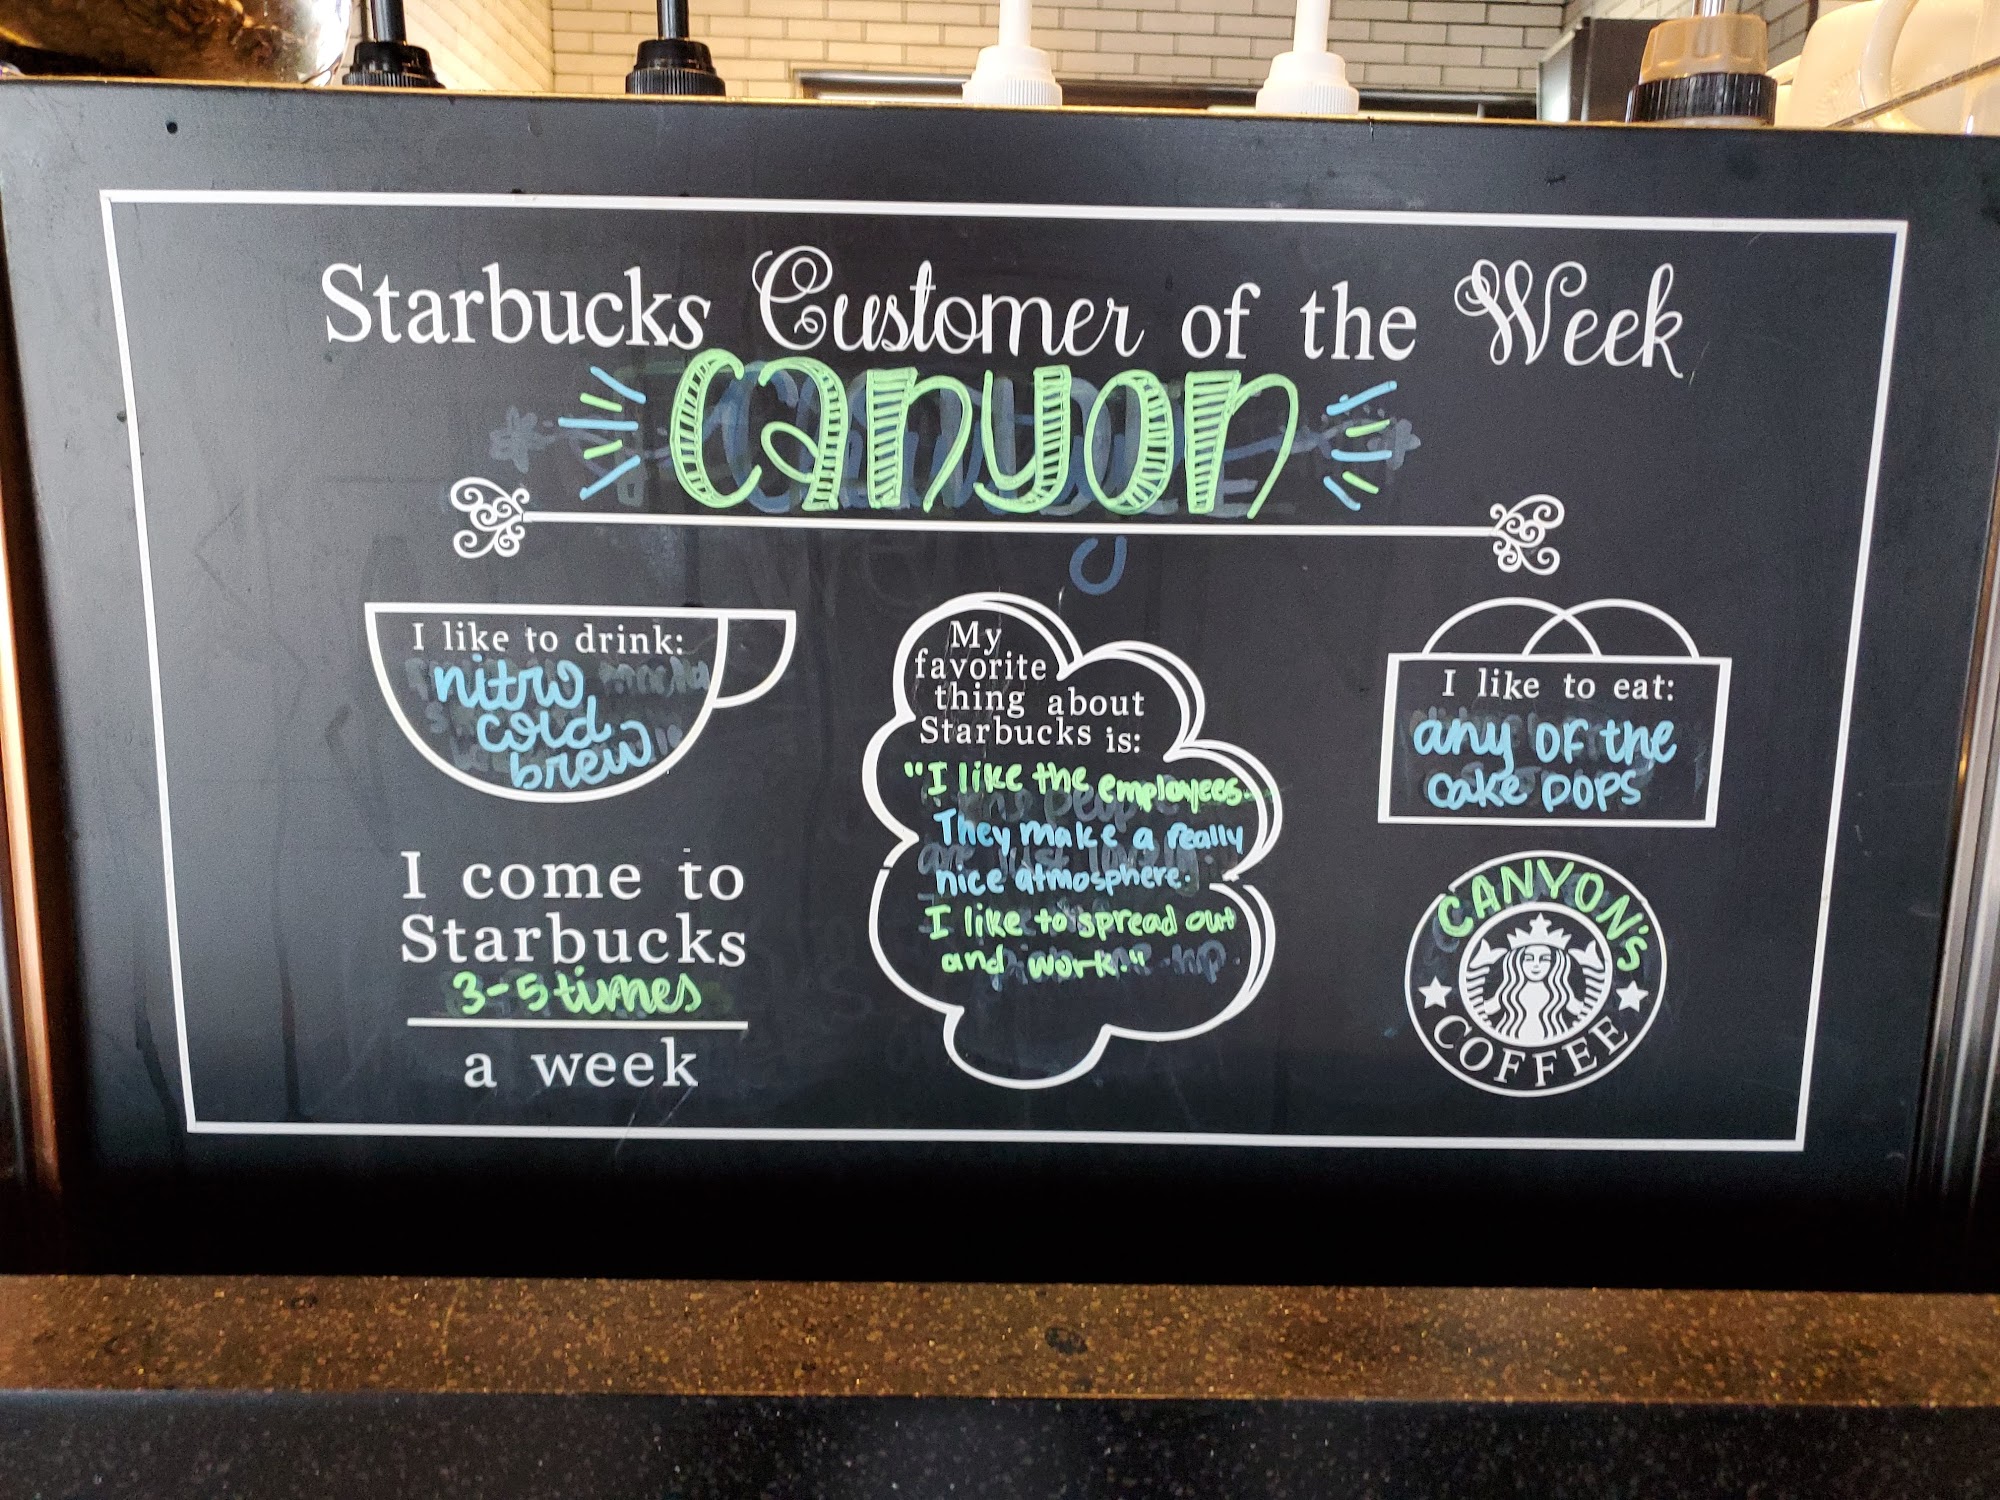 Starbucks Customer of the Week
canyon
I like to drink:
nitro
cold
brew
I come to
Starbucks
3-5 times
a week
My
favorite
thing about
Starbucks is:
"I like the employees.
They make a really
nice atmosphere.
I like to spread out
and work."
I like to eat:
any of the
cake pops
CANYON'S
COFFEE